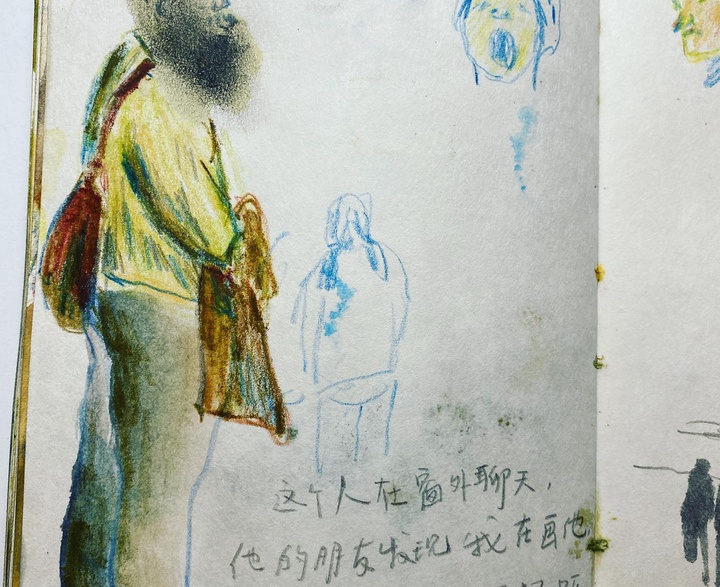 这个人在窗外聊天，
他的朋友发现我在画他